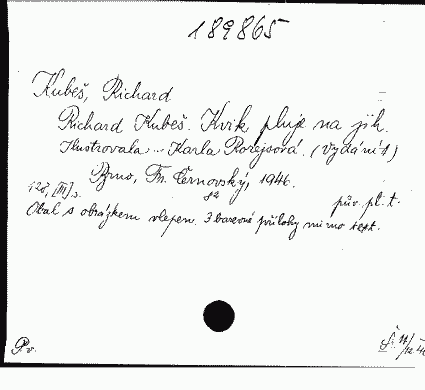 189865
Kubeš, Richard
Richard Kubeš. Kvik pluje na jih.
Ilustrovala... Karla Rořejsová. (Vydání 1)
Brno, Fr. Černovský, 1946.
128, [III] s. 8° pův. pl. t.
Obal s obrázkem vlepen. 3 barevné přílohy mimo text.
Pv.